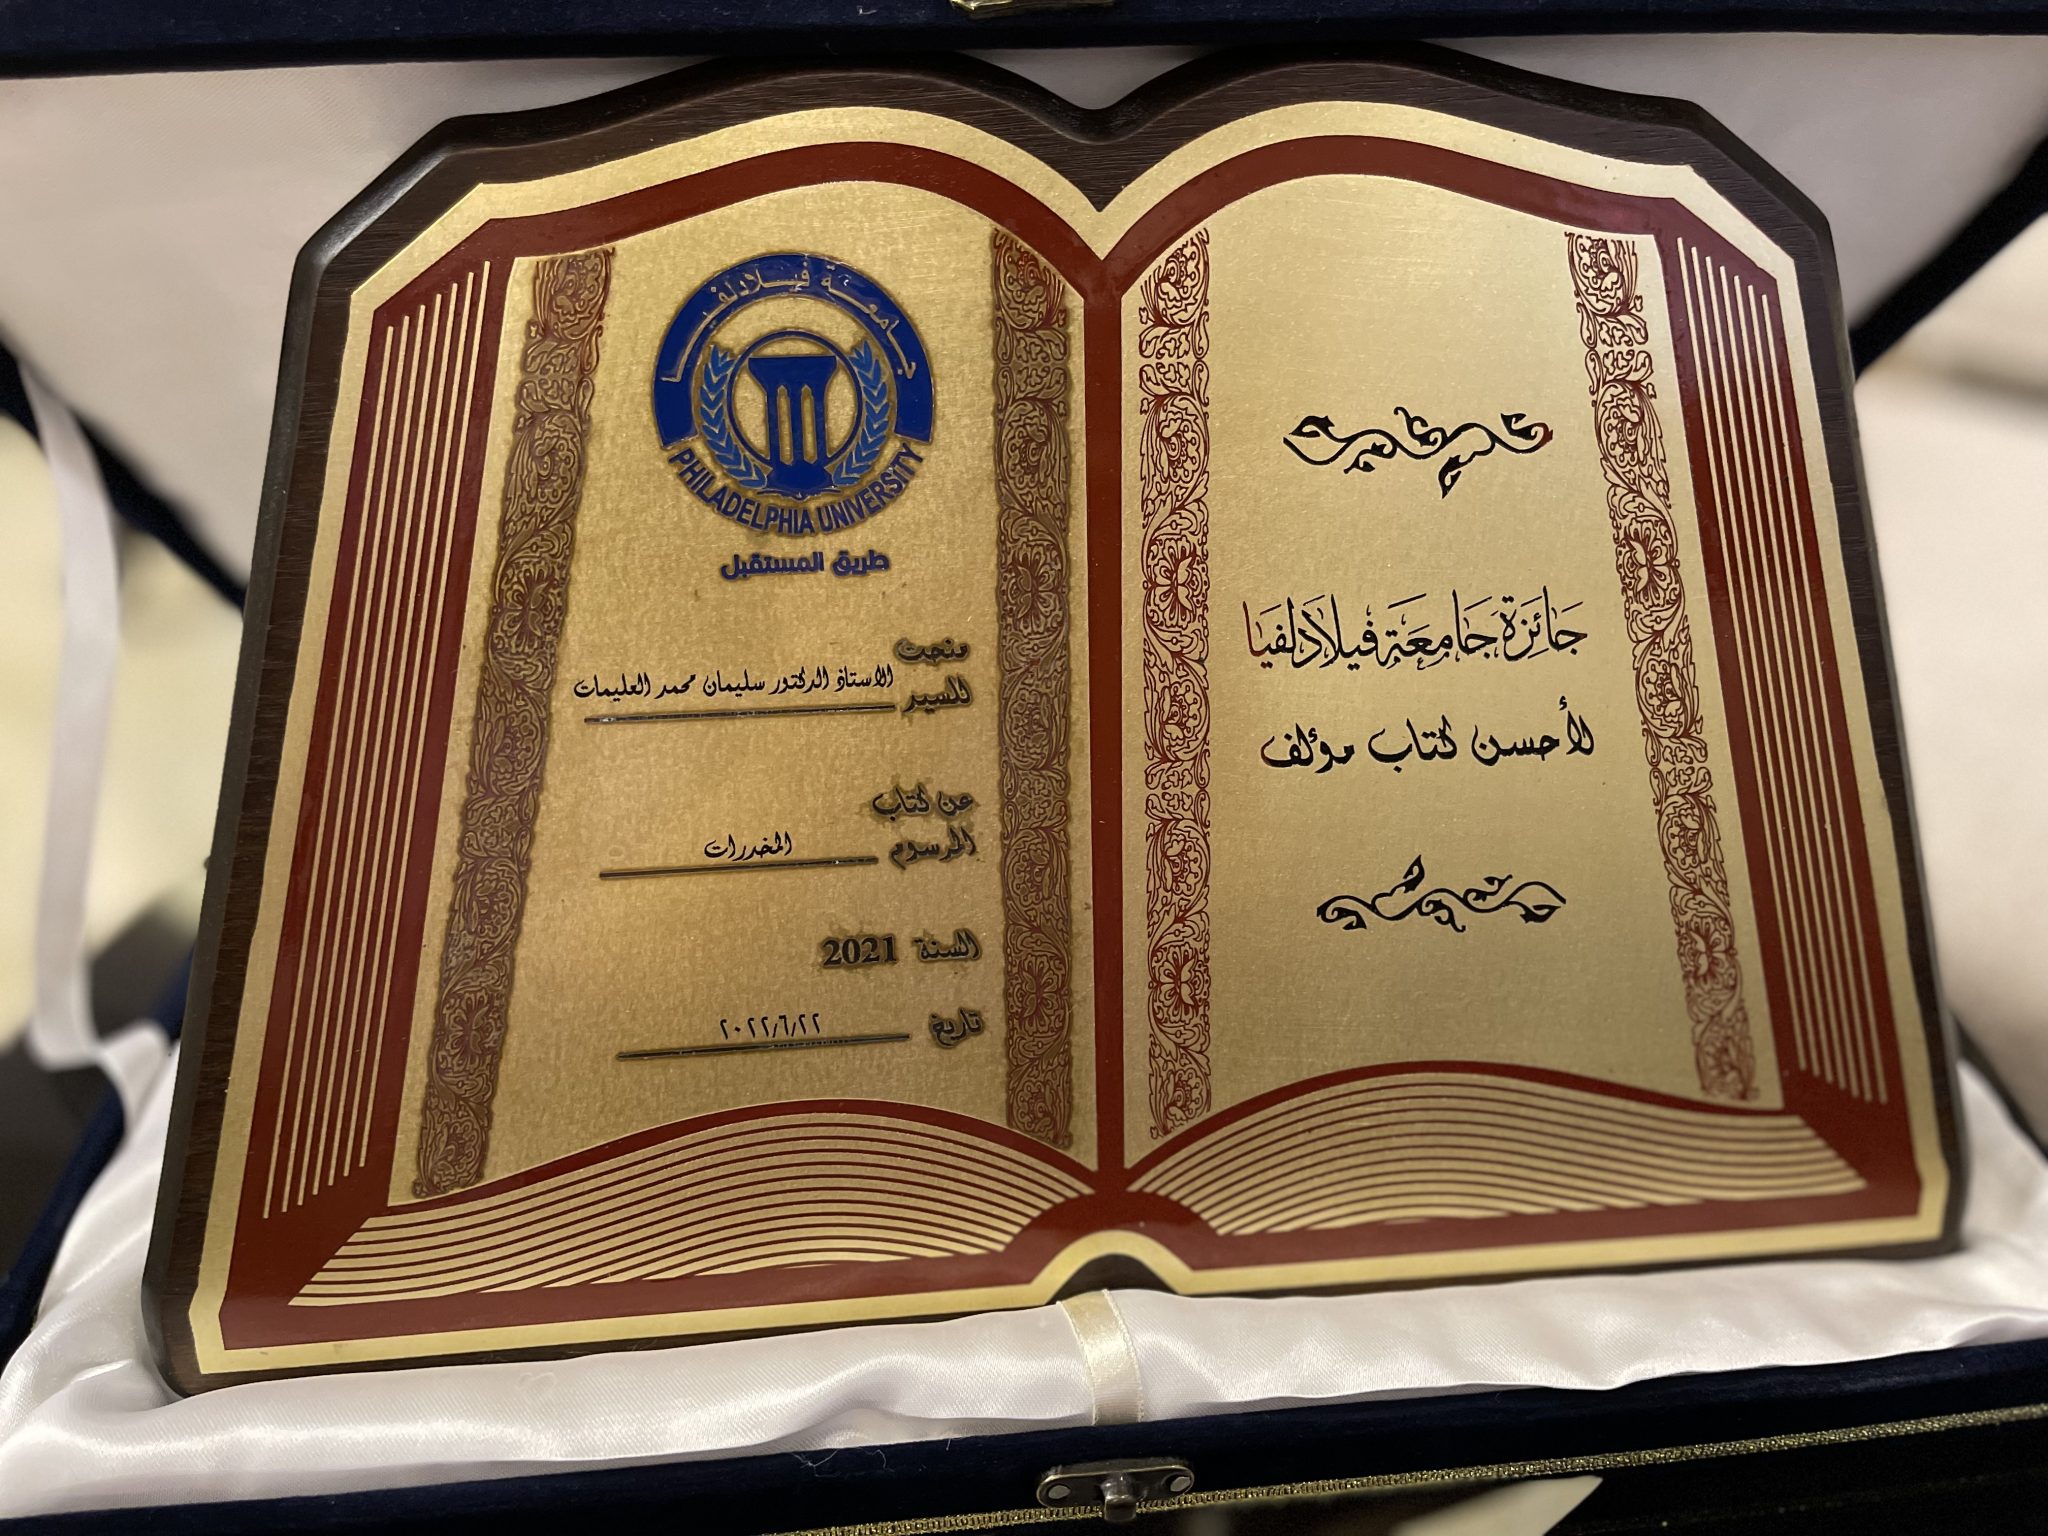 جَائِزَة جَامِعَة فيلَادلفيَا
لأحسن كتاب مؤلف
جامعة فيلادلفيا
PHILADELPHIA UNIVERSITY
طريق المستقبل
منحت
للسيد الاستاذ الدكتور سليمان محمد العليمات
عن كتاب
المرسوم المخدرات
السنة 2021
تاريخ ٢٠٢٢/٦/٢٢